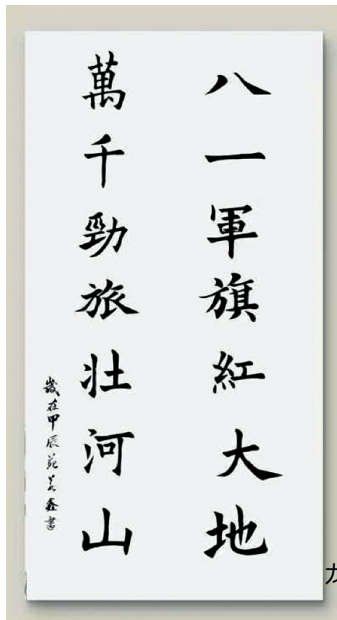 八一軍旗紅大地
萬千勁旅壯河山
歲在甲辰范芝鑫書